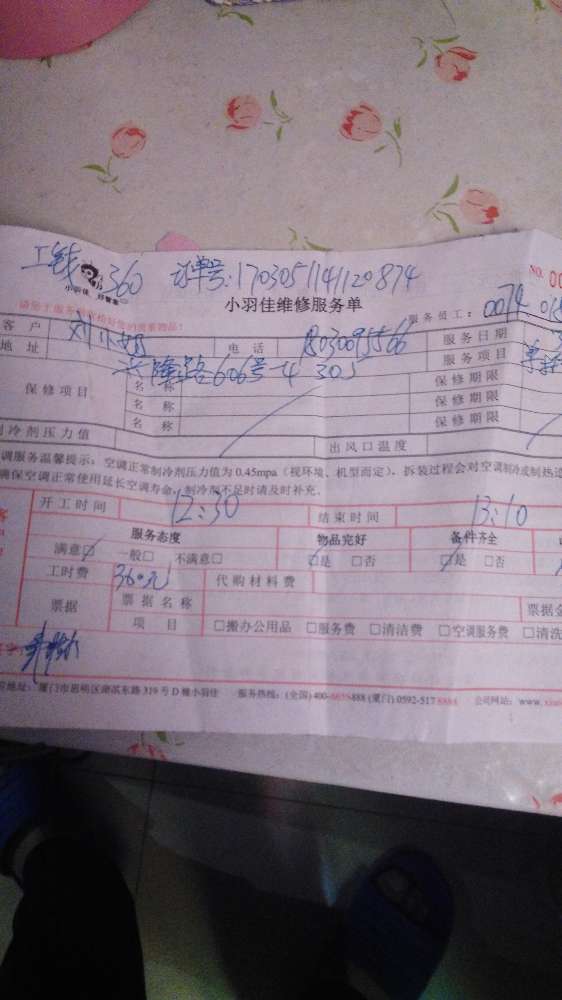 工钱 360 订单号:1703051141120874
小羽佳,好管家
小羽佳维修服务单
NO. 00
服务员工: 0074
客户 刘小姐 电话 服务日期
地址 606号-4 305 服务项目
保修项目 名称 保修期限
名称 保修期限
名称 保修期限
制冷剂压力值 出风口温度
调服务温馨提示:空调正常制冷剂压力值为0.45mpa(视环境、机型而定),拆装过程会对空调制冷或制热造
确保空调正常使用延长空调寿命,制冷剂不足时请及时补充。
开工时间 12:30 结束时间 13:10
服务态度 物品完好 备件齐全
满意☑ 一般□ 不满意□ ☑是 □否 ☑是 □否
工时费 360元 代购材料费
票据 票据名称 票据金
项目 □搬办公用品 □服务费 □清洁费 □空调服务费 □清洗
地址:厦门市思明区湖滨东路319号D幢小羽佳 服务热线:(全国)400-6655888(厦门)0592-5178888 公司网站:www.xiao